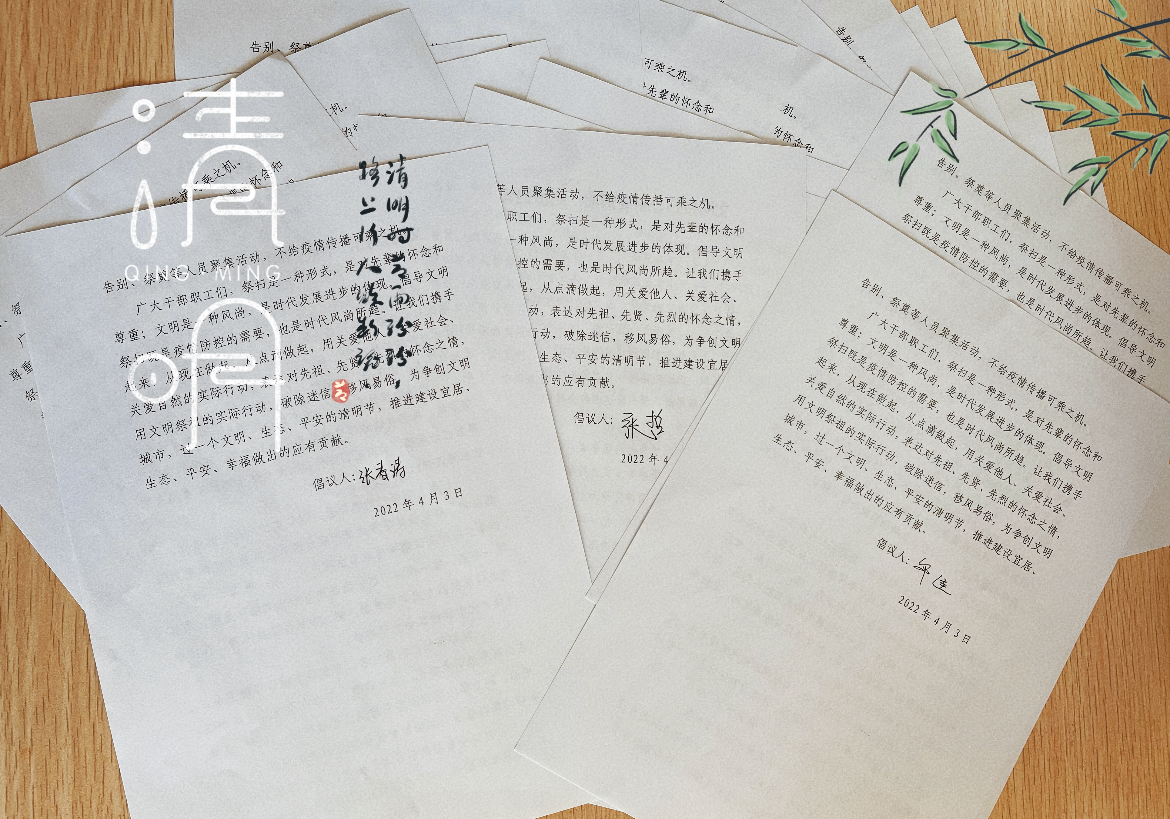 清明
QING MING
清明时节雨纷纷，
路上行人欲断魂。
告别、祭奠等人员聚集活动，不给疫情传播可乘之机。
广大干部职工们，祭扫是一种形式，是对先辈的怀念和
尊重；文明是一种风尚，是时代发展进步的体现。倡导文明
祭扫既是疫情防控的需要，也是时代风尚所趋。让我们携手
起来，从现在做起，从点滴做起，用关爱他人、关爱社会、
关爱自然的实际行动，表达对先祖、先贤、先烈的怀念之情，
用文明祭祖的实际行动，破除迷信，移风易俗，为争创文明
城市，过一个文明、生态、平安的清明节，推进建设宜居、
生态、平安、幸福做出的应有贡献。
倡议人：张春涛
2022 年 4 月 3 日
等人员聚集活动，不给疫情传播可乘之机。
职工们，祭扫是一种形式，是对先辈的怀念和
一种风尚，是时代发展进步的体现。倡导文明
控的需要，也是时代风尚所趋。让我们携手
起，从点滴做起，用关爱他人、关爱社会、
动，表达对先祖、先贤、先烈的怀念之情，
行动，破除迷信，移风易俗，为争创文明
生态、平安的清明节，推进建设宜居
的应有贡献。
倡议人：
2022 年 4
告别、祭奠等人员聚集活动，不给疫情传播可乘之机。
广大干部职工们，祭扫是一种形式，是对先辈的怀念和
尊重；文明是一种风尚，是时代发展进步的体现。倡导文明
祭扫既是疫情防控的需要，也是时代风尚所趋。让我们携手
起来，从现在做起，从点滴做起，用关爱他人、关爱社会、
关爱自然的实际行动，表达对先祖、先贤、先烈的怀念之情，
用文明祭祖的实际行动，破除迷信，移风易俗，为争创文明
城市，过一个文明、生态、平安的清明节，推进建设宜居、
生态、平安、幸福做出的应有贡献。
倡议人：
2022 年 4 月 3 日
告别、祭奠等人员聚集活动，不给疫情传播可乘之机。
广大干部职工们，祭扫是一种形式，是对先辈的怀念和
尊重；文明是一种风尚，是时代发展进步的体现。倡导文明
祭扫既是疫情防控的需要，也是时代风尚所趋。让我们携手
告别、祭奠
可乘之机。
先辈的怀念和
机。
的怀念和
告别、
传播可乘之机。
的怀念和